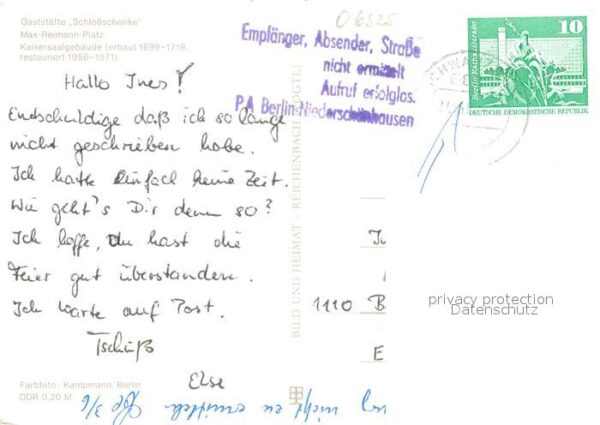 Gaststätte „Schloßschenke"
Max-Reimann-Platz
Kaisersaalgebäude (erbaut 1699–1719,
restauriert 1956–1971)
06825
Empfänger, Absender, Straße
nicht ermittelt
Aufruf erfolglos.
P.A Berlin-Niederschönhausen
10
DEUTSCHE DEMOKRATISCHE REPUBLIK
Hallo Ines!
Entschuldige daß ich so lange
nicht geschrieben habe.
Ich hatte einfach keine Zeit.
Wie geht's Dir denn so?
Ich hoffe, Du hast die
Feier gut überstanden.
Ich warte auf Post.
Tschüß
Else
BILD UND HEIMAT REICHENBACH (VOGTL)
1110 B
E
privacy protection
Datenschutz
Farbfoto: Kampmann, Berlin
DDR 0,20 M
nicht zu ermitteln